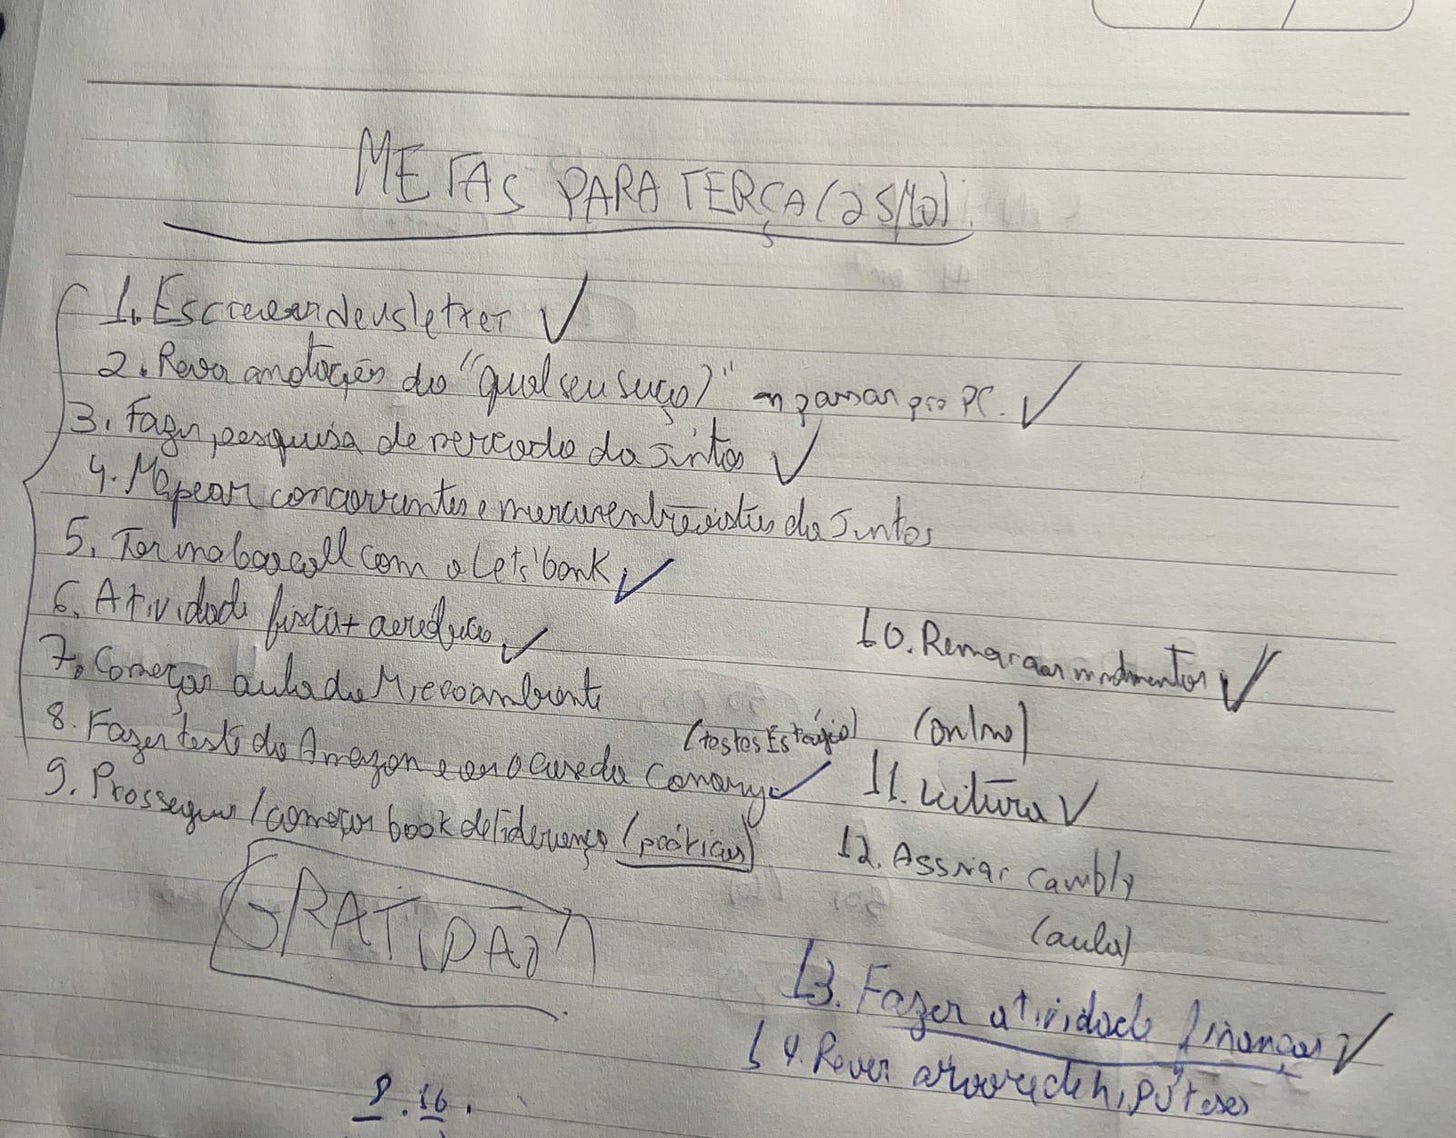 METAS PARA TERÇA (25/10).
1. Escrever Newsletter ✓
2. Rever anotações do "qual seu suco?" passar pro PC. ✓
3. Fazer pesquisa de mercado da Juntos ✓
4. Mapear concorrentes e marcar entrevistas da Juntos
5. Ter uma boa call com o Lets'bank ✓
6. Atividade física + aeróbico ✓
7. Começar aula de Microambiente
(testes Estágio)
8. Fazer teste da Amazon e o da ✓
9. Prosseguir / começar book de liderança (práticas)
GRATIDÃO
10. Remarcar ✓
(online)
11. Leitura ✓
12. Assinar cambly
(aula)
13. Fazer atividade finanças ✓
14. Rever árvore de hipóteses
8.16.